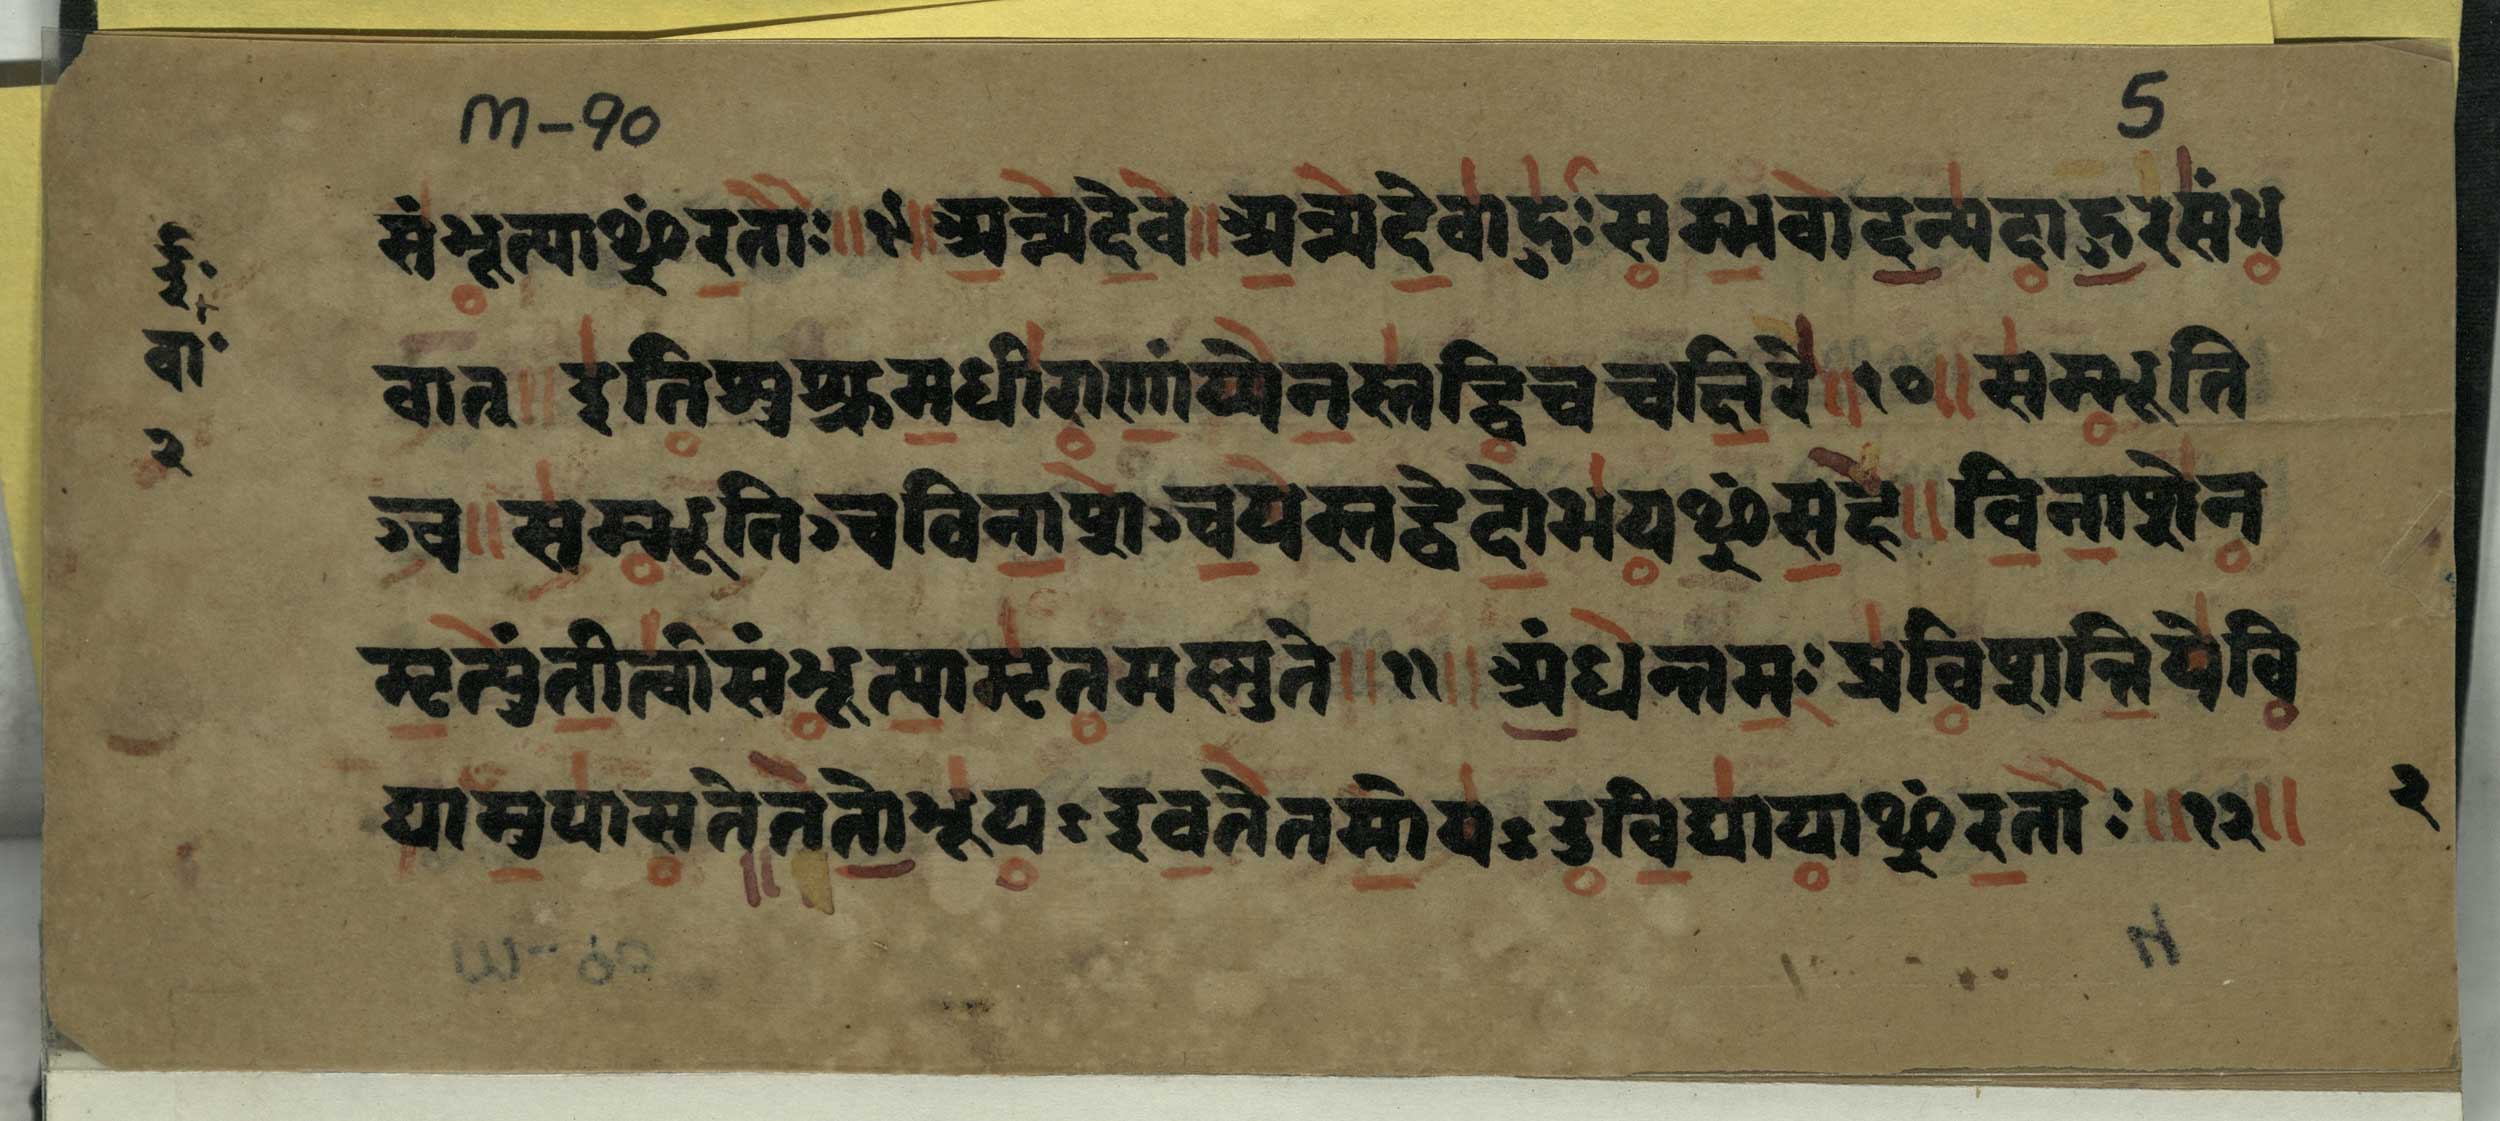 M-90
5
संभूत्याᳪरताः॥९॥अन्यदेव॥अन्यदेवाहुःसम्भवादन्यदाहुरसंभ
ई॰
वा॰
२
वात्॥इतिशुश्रुमधीराणांय्येनस्तद्विचचक्षिरे॥१०॥सम्भूति
ञ्च॥सम्भूतिञ्चविनाशञ्चयस्तद्वेदोभयᳪसह॥विनाशेन
मृत्युंतीर्त्वासंभूत्यामृतमश्नुते॥११॥अंधन्तमःप्रविशन्तियेवि
द्यामुपासते॥ततोभूयऽइवतेतमोयऽउविद्यायाᳪरताः॥१२॥
२